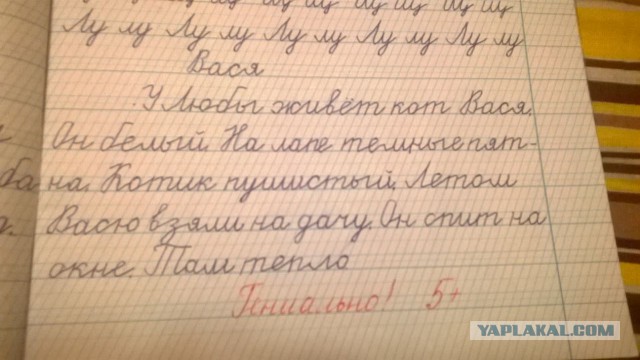 Лу лу Лу лу Лу лу Лу лу Лу лу
Вася
У Любы живёт кот Вася.
Он белый. На лапе темные пят-
на. Котик пушистый. Летом
Васю взяли на дачу. Он спит на
окне. Там тепло
Гениально! 5+
YAPLAKAL.COM